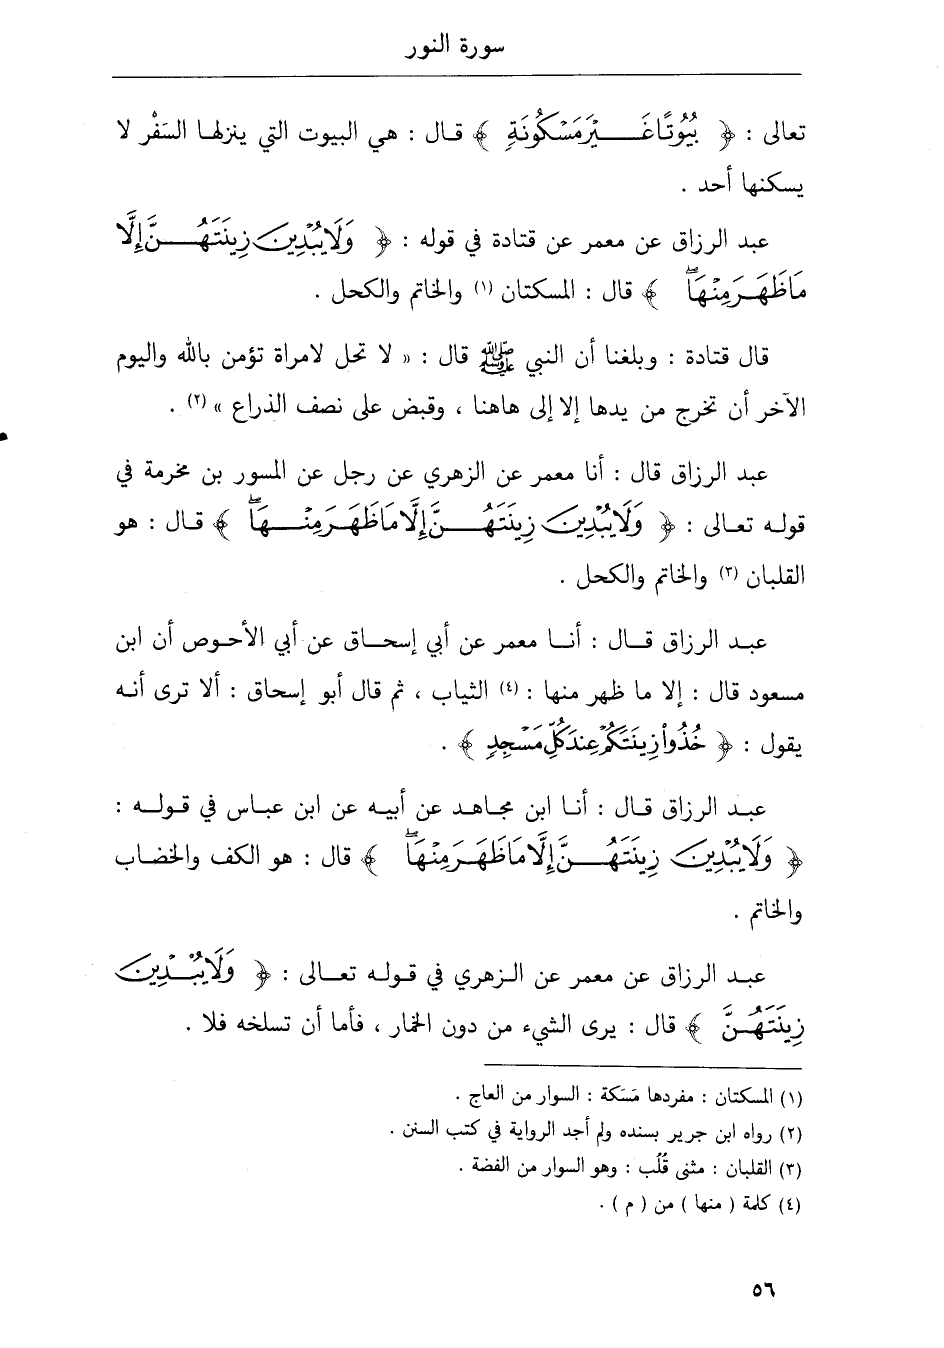 سورة النور
تعالى : ﴿ بُيُوتًا غَيْرَ مَسْكُونَةٍ ﴾ قال : هي البيوت التي ينزلها السَفْر لا
يسكنها أحد .
عبد الرزاق عن معمر عن قتادة في قوله : ﴿ وَلَا يُبْدِينَ زِينَتَهُنَّ إِلَّا
مَا ظَهَرَ مِنْهَا ۖ ﴾ قال : المسكتان (١) والخاتم والكحل .
قال قتادة : وبلغنا أن النبي ﷺ قال : « لا تحل لامراة تؤمن بالله واليوم
الآخر أن تخرج من يدها إلا إلى هاهنا ، وقبض على نصف الذراع » (٢) .
عبد الرزاق قال : أنا معمر عن الزهري عن رجل عن المسور بن مخرمة في
قوله تعالى : ﴿ وَلَا يُبْدِينَ زِينَتَهُنَّ إِلَّا مَا ظَهَرَ مِنْهَا ۖ ﴾ قال : هو
القلبان (٣) والخاتم والكحل .
عبد الرزاق قال : أنا معمر عن أبي إسحاق عن أبي الأحوص أن ابن
مسعود قال : إلا ما ظهر منها : (٤) الثياب ، ثم قال أبو إسحاق : ألا ترى أنه
يقول : ﴿ خُذُواْ زِينَتَكُمْ عِندَ كُلِّ مَسْجِدٍ ﴾ .
عبد الرزاق قال : أنا ابن مجاهد عن أبيه عن ابن عباس في قوله :
﴿ وَلَا يُبْدِينَ زِينَتَهُنَّ إِلَّا مَا ظَهَرَ مِنْهَا ۖ ﴾ قال : هو الكف والخضاب
والخاتم .
عبد الرزاق عن معمر عن الزهري في قوله تعالى : ﴿ وَلَا يُبْدِينَ
زِينَتَهُنَّ ﴾ قال : يرى الشيء من دون الخمار ، فأما أن تسلخه فلا .
(١) المسكتان : مفردها مَسَكة : السوار من العاج .
(٢) رواه ابن جرير بسنده ولم أجد الرواية في كتب السنن .
(٣) القلبان : مثنى قُلْب : وهو السوار من الفضة .
(٤) كلمة ( منها ) من ( م ) .
٥٦